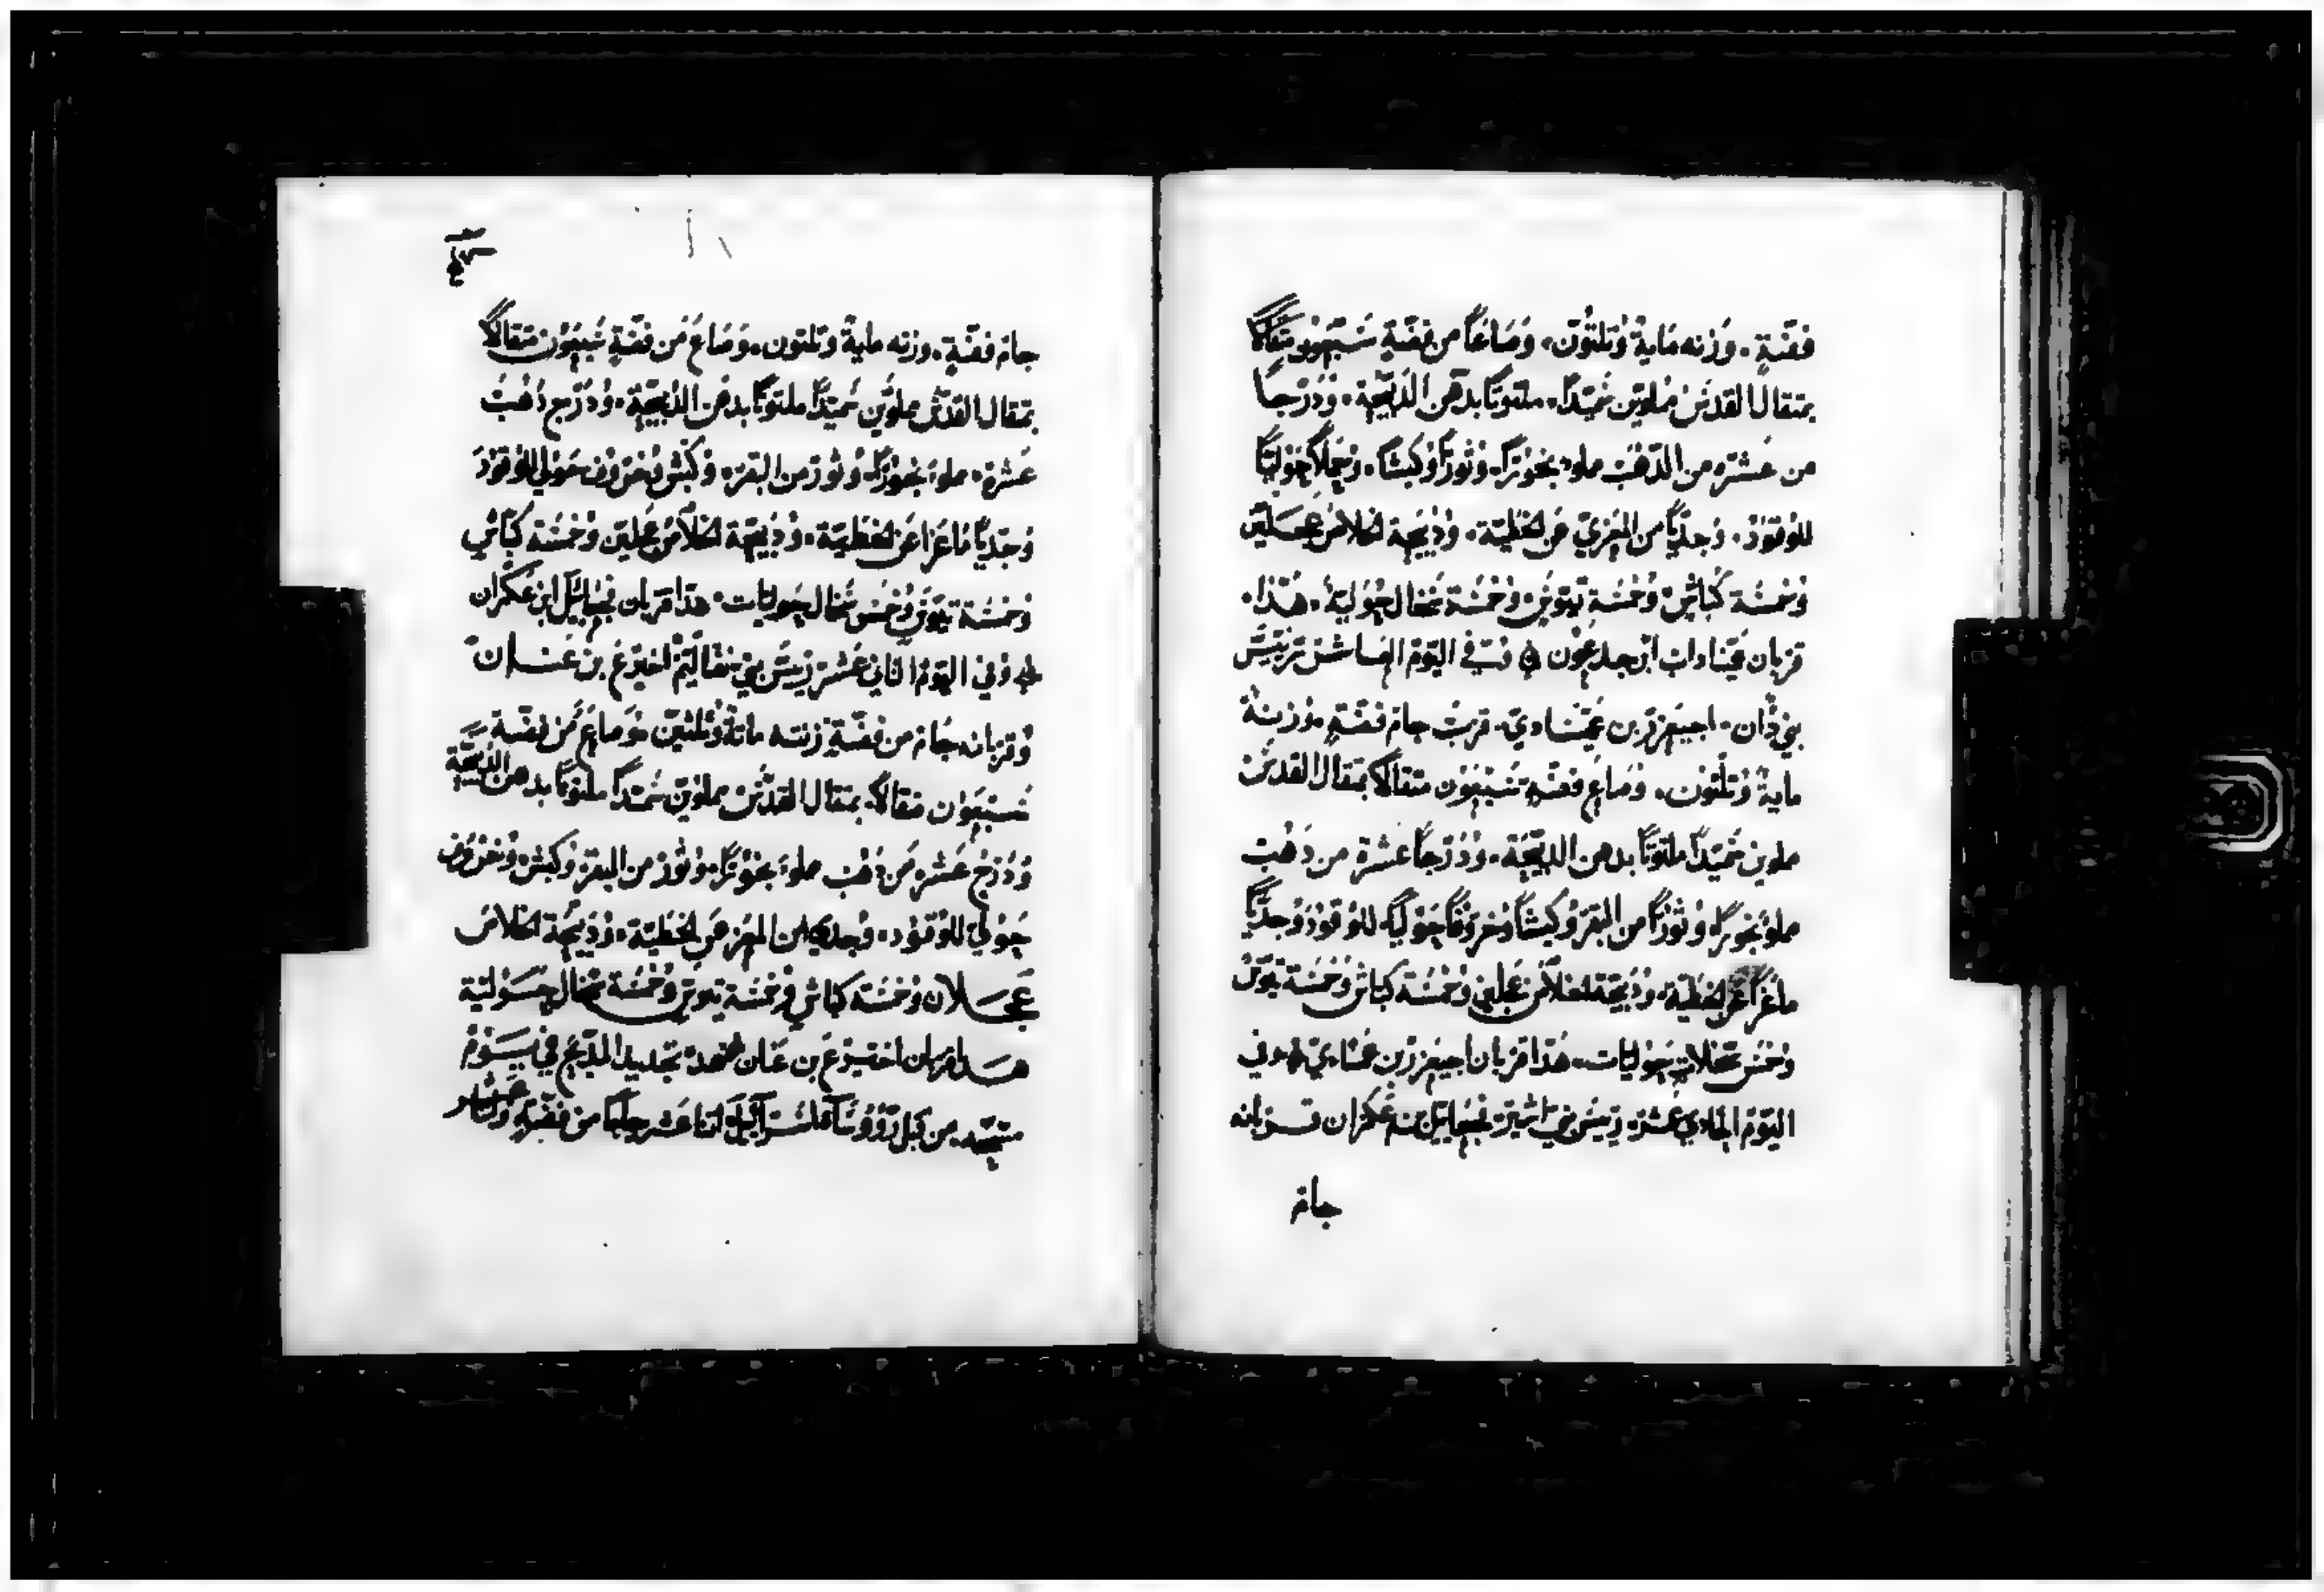 فضة. وزنه ماية وتلتون. وصاعاً من فضة سبعون متقالاً
بمتقال القدس مملوين سميداً. ملتوتاً بدهن الدبيحة. ودرجاً
من عشرة من الدهب مملوء بخوراً. وثوراً وكبشاً. وحملاً حولياً
للوقود. وجدياً من المعزي عن الخطية. ودبيحة الخلاص عجلين
وخمسة كباش وخمسة تيوس وخمسة سخال حولية. هذا.
قربان ابن جدعون في اليوم العاشر رييس
بني دان. اجيعزر بن عميشادي. قرب جام فضة وزنه
ماية وتلتون. وصاع فضة سبعون متقالاً بمتقال القدس
ملوين سميداً ملتوتاً بدهن الدبيحة. ودرجاً عشرة من دهب
مملوء بخوراً وثوراً من البقر وكبشاً وخروفاً حولياً للوقود وجدياً
ماعزاً عن الخطية. ودبيحة الخلاص عجلين وخمسة كباش وخمسة تيوس
وخمس سخلات حوليات. هذا قربان اجيعزر بن عميشادي وفي
اليوم الحادي عشر رييس بني اشير نجعاييل بن عكران قربانه
جام
جام فضة. وزنه ماية وتلتون. وصاع من فضة سبعون متقالاً
بمتقال القدس مملوين سميداً ملتوتاً بدهن الدبيحة. ودرج دهب
عشرة. مملوء بخوراً. وثور من البقر. وكبش وخروف حولي للوقود
وجدياً ماعزاً عن الخطية. ودبيحة الخلاص عجلين وخمسة كباش
وخمسة تيوس وخمس سخال حوليات. هذا قربان نجعاييل ابن عكران
وفي اليوم الثاني عشر رييس بني نفتاليم اخيرع بن عنان
وقربانه جام من فضة زنته ماتة وتلتين وصاع من فضة
سبعون متقالاً. بمتقال القدس مملوين سميداً ملتوتاً بدهن الدبيحة
ودرج عشرة من دهب مملوء بخوراً. وثور من البقر وكبش وخروف
حولي للوقود. وجدي من المعز عن الخطية. ودبيحة الخلاص
عجلان وخمسة كباش وخمسة تيوس وخمسة سخال حولية
هذا قربان اخيرع بن عنان فهده تجديد المدبح في يوم
مسحه. من كل روساً اسراييل اتنا عشر جاماً من فضة